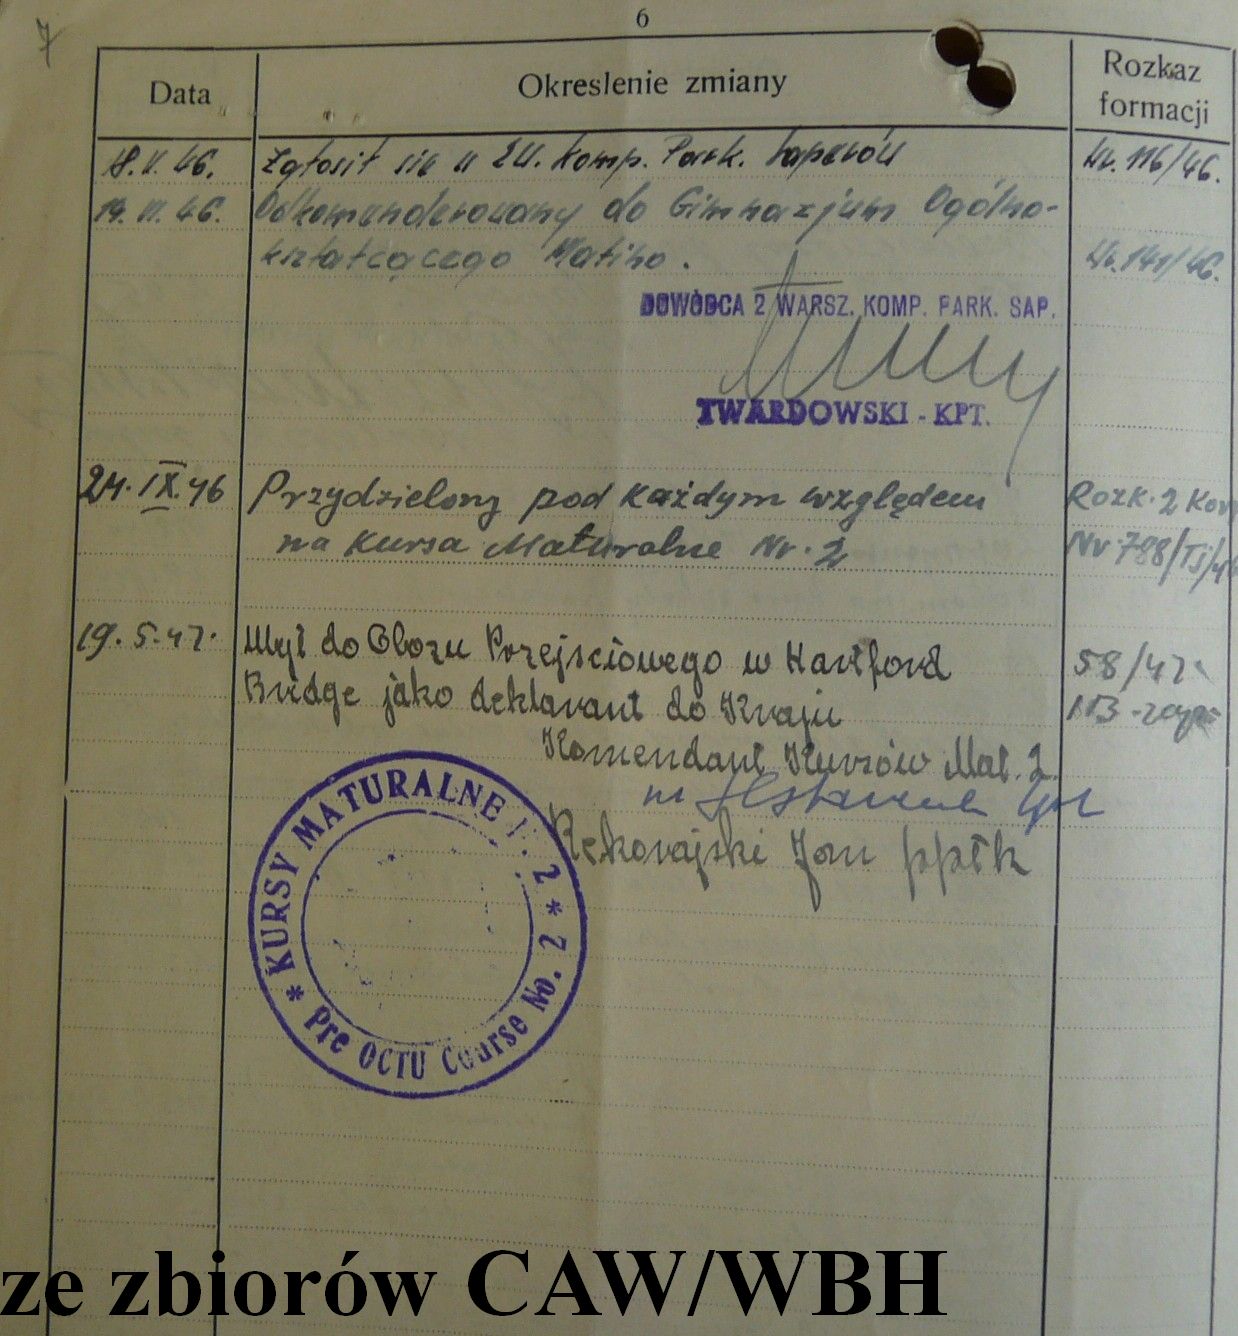 7
6
Data Okreslenie zmiany Rozkaz formacji
18.V.46. Zgłosił się u komp. Park. Saperów 116/46.
14.VI.46. Odkomenderowany do Gimnazjum Ogólno-
kształcącego Matino. 141/46.
DOWÓDCA 2 WARSZ. KOMP. PARK. SAP.
TWARDOWSKI - KPT.
24.IX.46 Przydzielony pod każdym względem Rozk. 2 Kor
na Kursa Maturalne Nr. 2 Nr. 788/Tj/4
19.5.47. Wył do Obozu Przejściowego w Hartford 58/47
Bridge jako deklarant do Kraju
Komendant Kursów Mat. 2.
Rękorajski Jan ppłk
* KURSY MATURALNE 2 *
Pre OCTU Course No. 2
ze zbiorów CAW/WBH